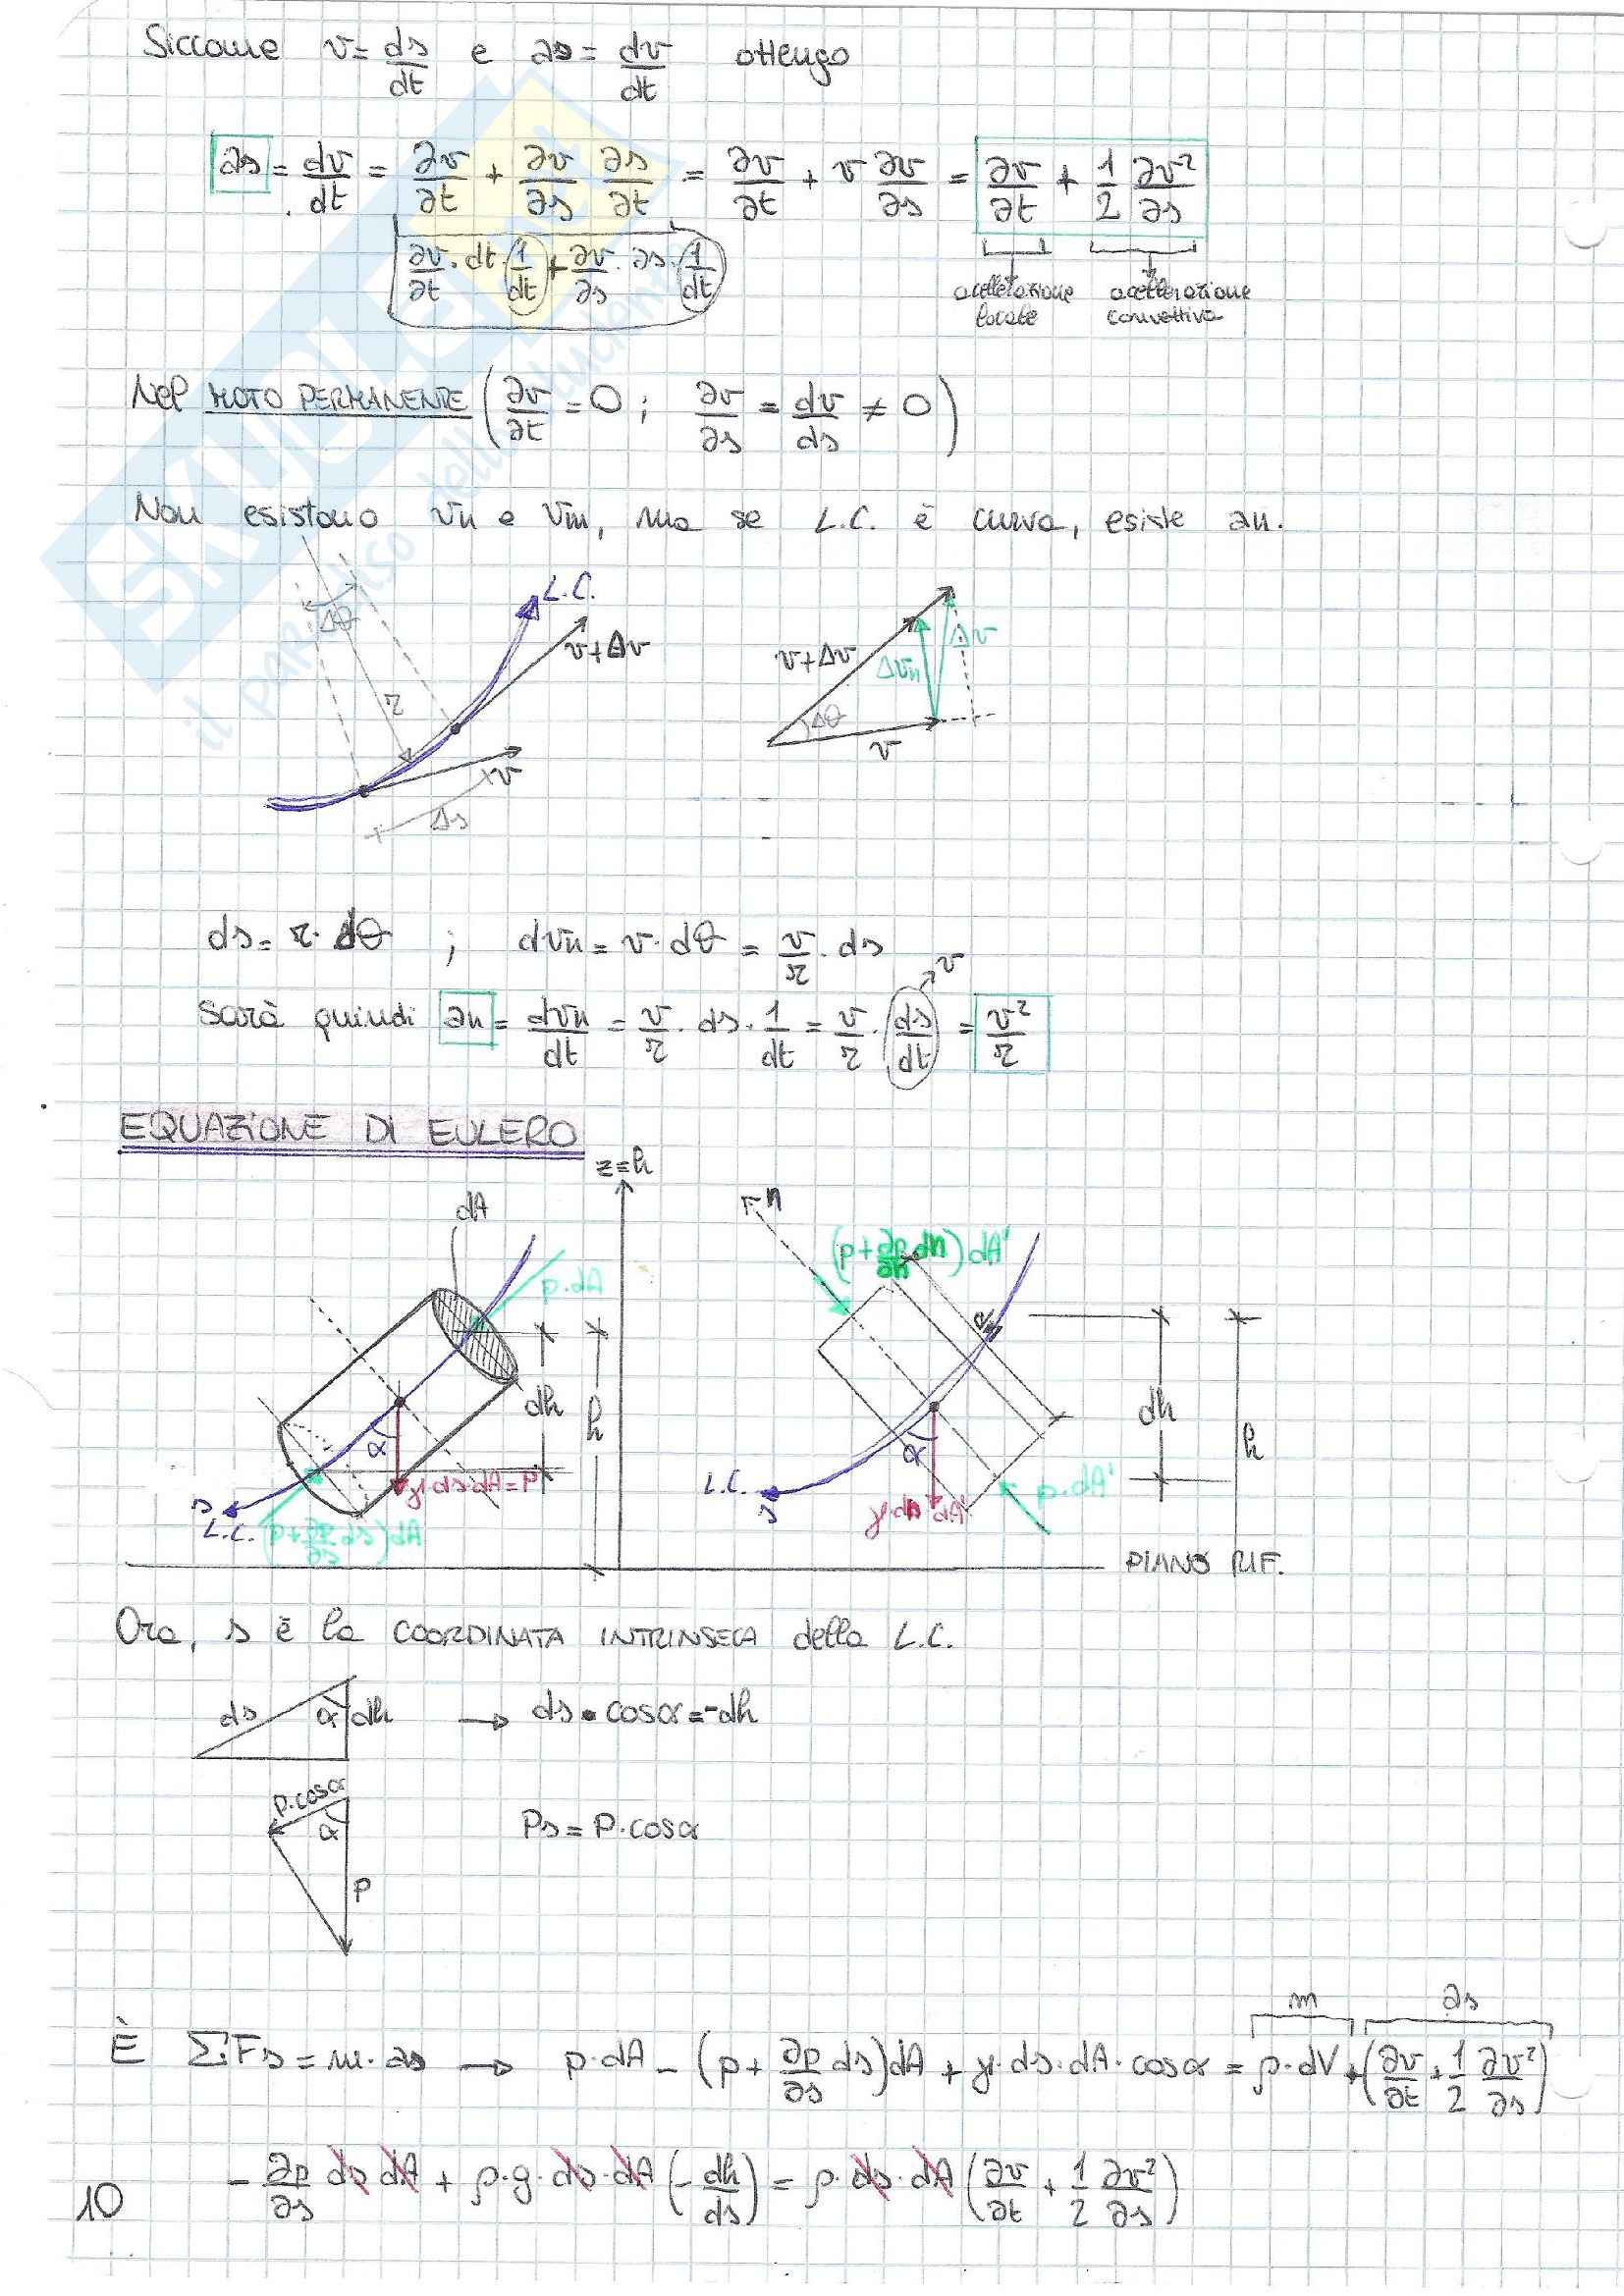 Siccome v = ds/dt e as = dv/dt ottengo
as = dv/dt = ∂v/∂t + ∂v/∂s ∂s/∂t = ∂v/∂t + v ∂v/∂s = ∂v/∂t + 1/2 ∂v²/∂s
∂v/∂t · dt · 1/dt + ∂v/∂s · ∂s · 1/dt
accelerazione locale
accellerazione convettiva
Nel MOTO PERMANENTE (∂v/∂t = 0 ; ∂v/∂s = dv/ds ≠ 0)
Non esistono vn e vm, ma se L.C. è curva, esiste an.
Δθ
L.C.
v+Δv
r
v
Δs
v+Δv
Δvn
Δv
Δθ
v
ds = r · dθ ; dvn = v · dθ = v/r · ds
v
Sarà quindi an = dvn/dt = v/r · ds · 1/dt = v/r · ds/dt = v²/r
EQUAZIONE DI EULERO
z=h
dA
p·dA
dh
h
α
γ·ds·dA=P
s
L.C.
(p+∂p/∂s ds)dA
n
(p+∂p/∂n dn)dA'
dh
h
α
L.C.
s
p·dA'
PIANO RIF.
Ora, s è la COORDINATA INTRINSECA della L.C.
ds α dh → ds · cosα = -dh
P·cosα
α
Ps = P·cosα
P
m as
È ΣFs = m · as → p·dA - (p + ∂p/∂s ds)dA + γ·ds·dA·cosα = ρ·dV·(∂v/∂t + 1/2 ∂v²/∂s)
- ∂p/∂s ds dA + ρ·g·ds·dA (- dh/ds) = ρ·ds·dA (∂v/∂t + 1/2 ∂v²/∂s)
10